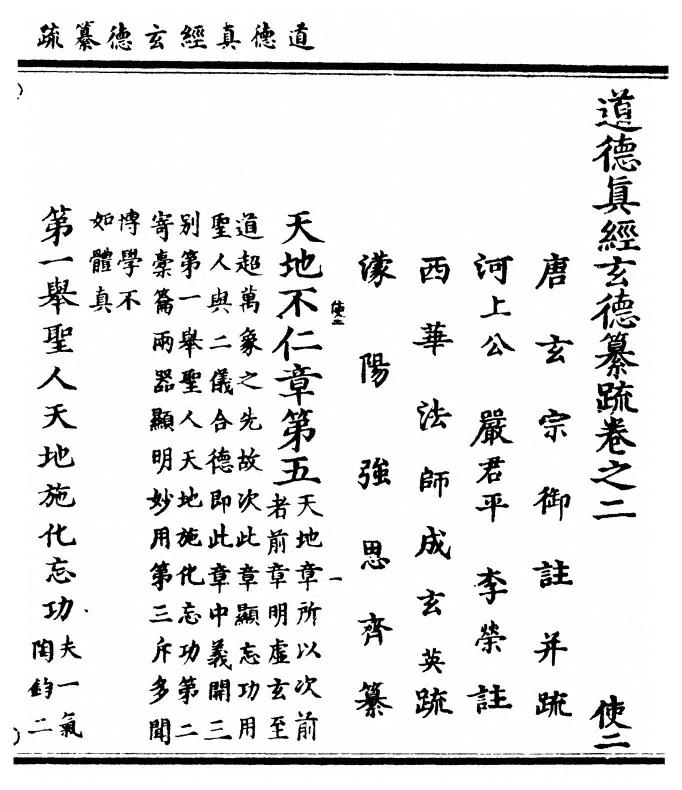 道德真經玄德纂疏
道德眞經玄德纂疏卷之二 使二
唐玄宗御註并疏
河上公 嚴君平 李榮註
西華法師成玄英疏
濛陽強思齊纂
使二 一
天地不仁章第五 天地章所以次前
者前章明虛玄至
道超萬象之先故次此章顯忘功用
聖人與二儀合德即此章中義開三
別第一舉聖人天地施化忘功第二
寄橐籥兩器顯明妙用第三斥多聞
博學不
如體真
第一舉聖人天地施化忘功 夫一氣
陶鈞二